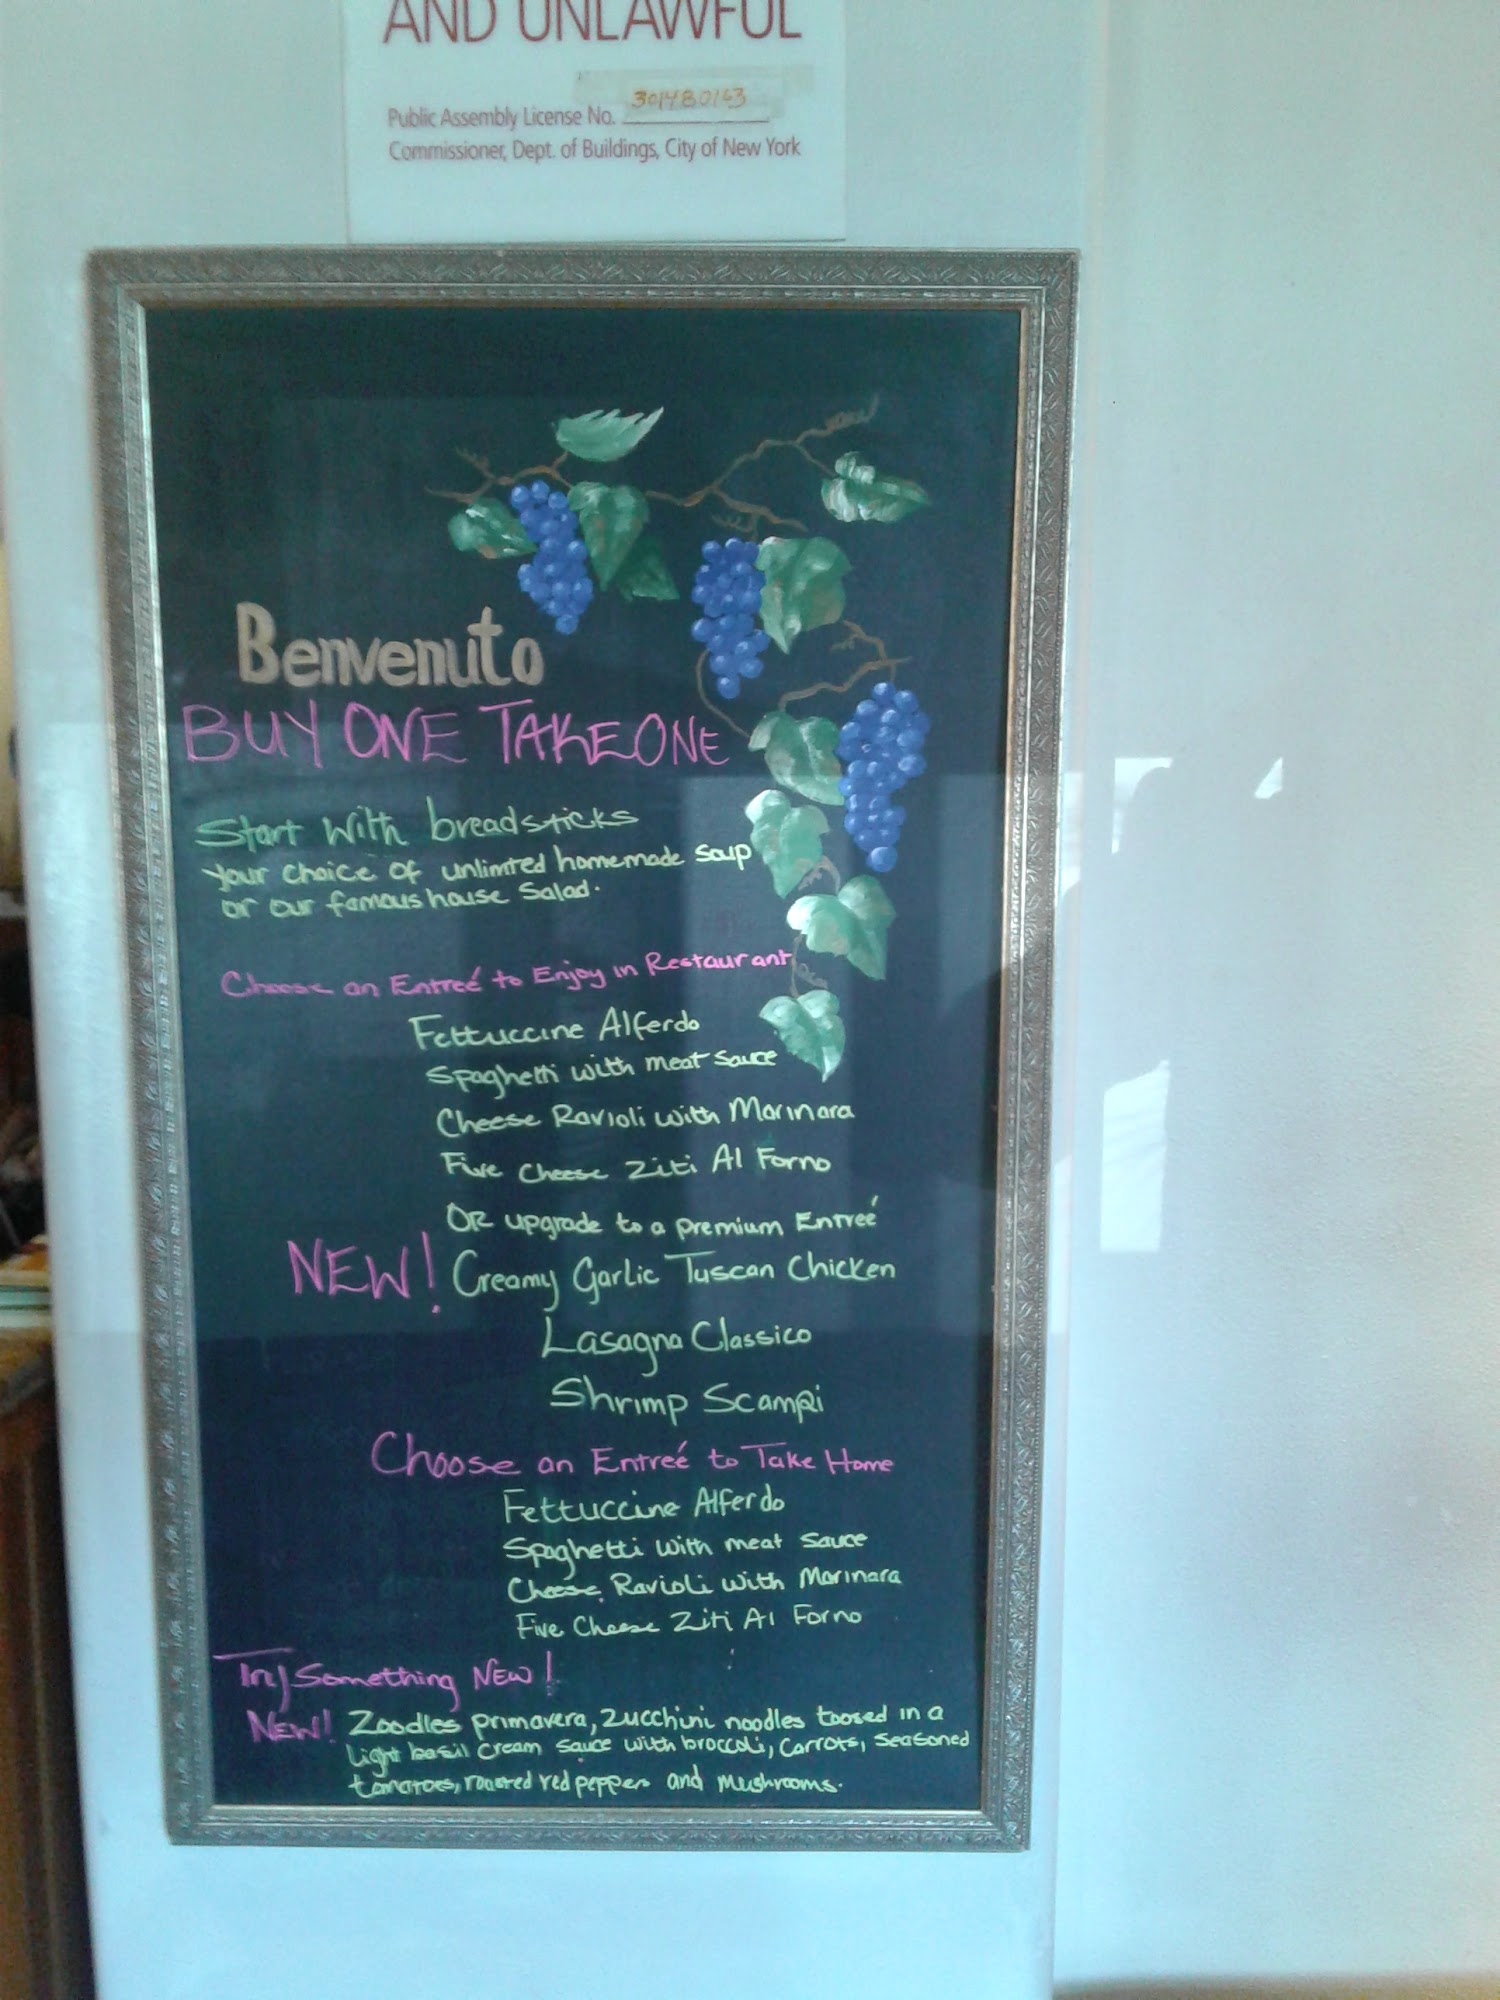 AND UNLAWFUL
Public Assembly License No. 301480163
Commissioner, Dept. of Buildings, City of New York
Benvenuto
BUY ONE TAKE ONE
Start With breadsticks
your choice of unlimted homemade soup
or our famous house Salad.
Choose an Entreé to Enjoy in Restaurant
Fettuccine Alferdo
Spaghetti with meat Sauce
Cheese Ravioli with Marinara
Five Cheese Ziti Al Forno
OR upgrade to a premium Entreé
NEW! Creamy Garlic Tuscan Chicken
Lasagna Classico
Shrimp Scampi
Choose an Entreé to Take Home
Fettuccine Alferdo
Spaghetti with meat Sauce
Cheese Ravioli with Marinara
Five Cheese Ziti Al Forno
Try Something New!
NEW! Zoodles primavera, Zucchini noodles toosed in a
Light basil cream sauce with broccoli, carrots, seasoned
tomatoes, roasted red peppers and mushrooms.